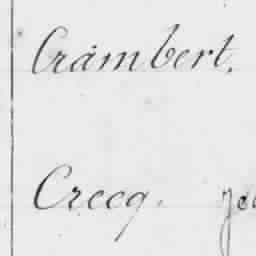 Crambert.
Crecq.